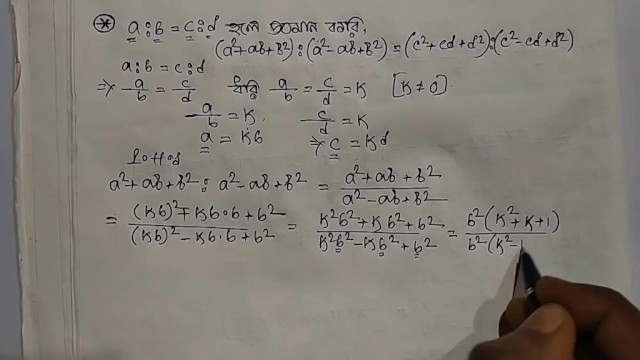 * a:b = c:d হলে প্রমান করি,
(a²+ab+b²):(a²-ab+b²) = (c²+cd+d²):(c²-cd+d²)
a:b = c:d
⇒ a/b = c/d ধরি a/b = c/d = K [K≠0]
a/b = K c/d = K
a = Kb ⇒ c = Kd
a²+ab+b² : a²-ab+b² = a²+ab+b² / a²-ab+b²
= (Kb)²+Kb·b+b² / (Kb)²-Kb·b+b² = K²b²+Kb²+b² / K²b²-Kb²+b² = b²(K²+K+1) / b²(K²-